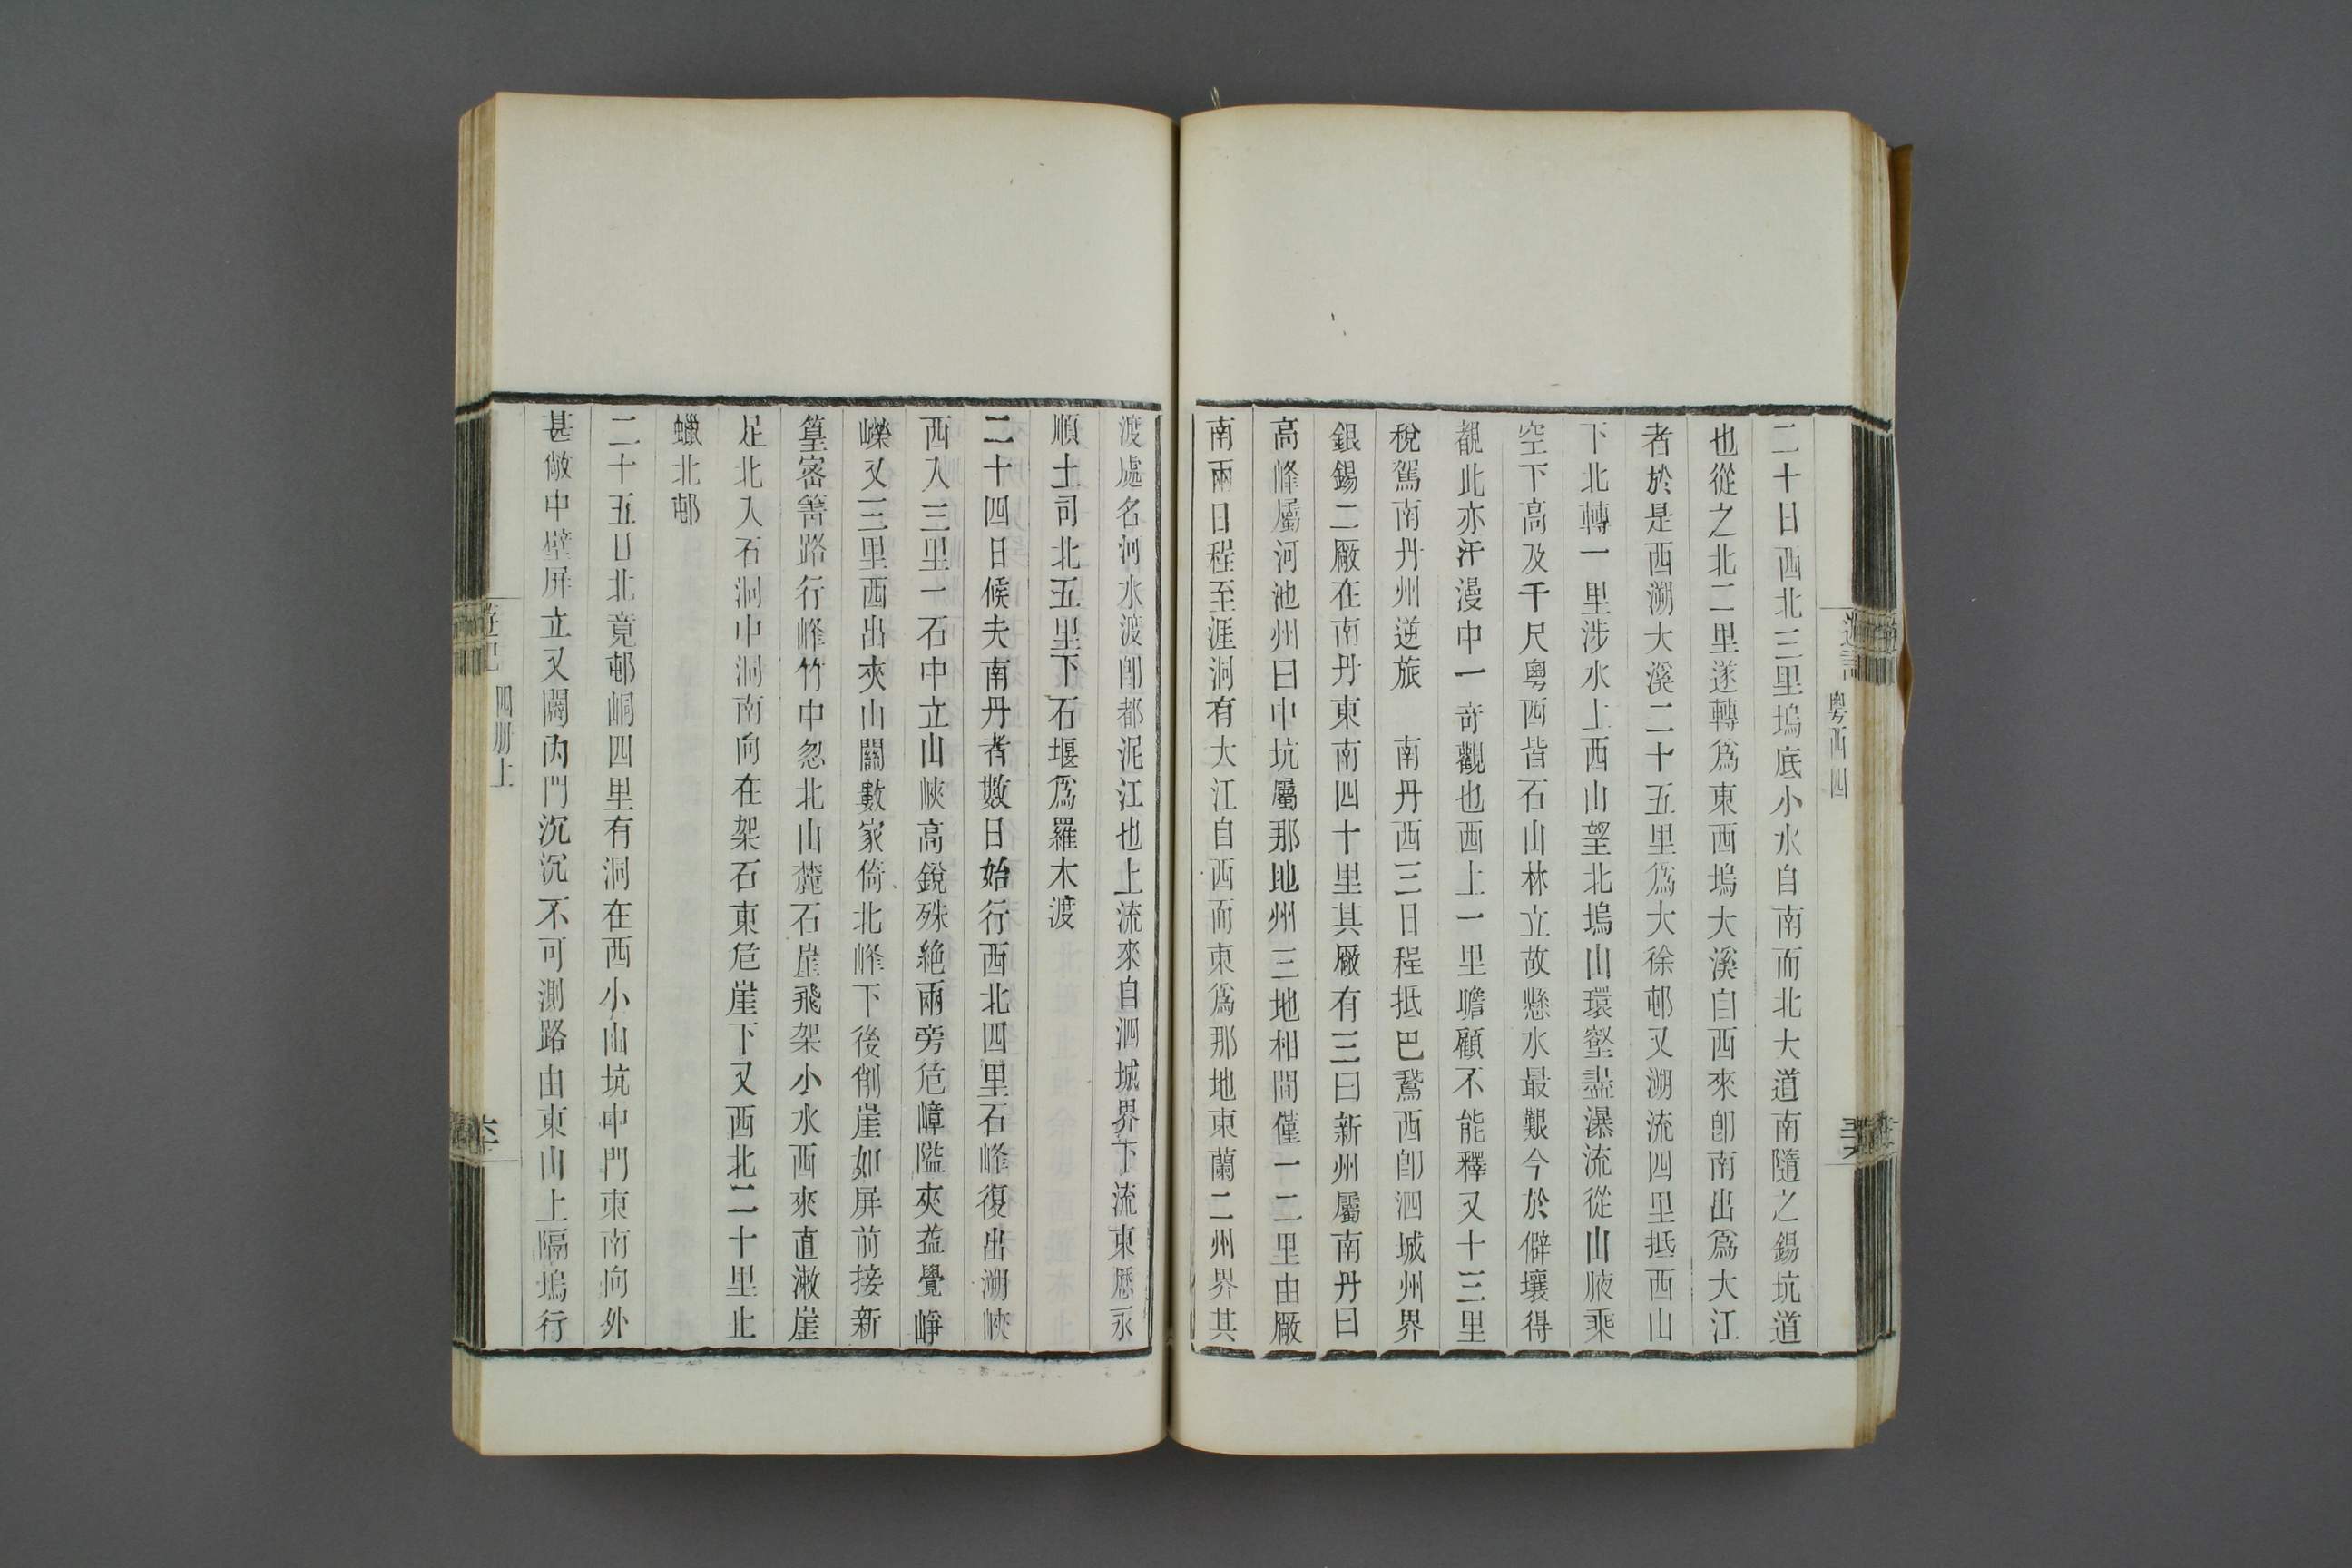 二十日西北三里塢底小水自南而北大道南隨之錫坑道
也從之北二里遂轉爲東西塢大溪自西來卽南出爲大江
者於是西溯大溪二十五里爲大徐邨又溯流四里抵西山
下北轉一里涉水上西山望北塢山環壑盡瀑流從山腋乘
空下高及千尺粵西皆石山林立故懸水最艱今於僻壤得
覩此亦汗漫中一奇觀也西上一里瞻顧不能釋又十三里
稅駕南丹州逆旅 南丹西三日程抵巴鵞西卽泗城州界
銀錫二厰在南丹東南四十里其厰有三曰新州屬南丹曰
高峰屬河池州曰中坑屬那地州三地相間僅一二里由厰
南兩日程至涯洞有大江自西而東爲那地東蘭二州界其
渡處名河水渡卽都泥江也上流來自泗城界下流東歷永
順土司北五里下石堰爲羅木渡
二十四日候夫南丹者數日始行西北四里石峰復出溯峽
西入三里一石中立山峽高銳殊絶兩旁危嶂隘夾葢覺崢
嶸又三里西出夾山關數家倚北峰下後削崖如屏前接新
篁密箐路行峰竹中忽北山麓石崖飛架小水西來直漱崖
足北入石洞中洞南向在架石東危崖下又西北二十里止
蠟北邨
二十五日北竟邨峒四里有洞在西小山坑中門東南向外
甚敞中壁屏立又闢內門沉沉不可測路由東山上隔塢行
遊記 粵西四
四册上